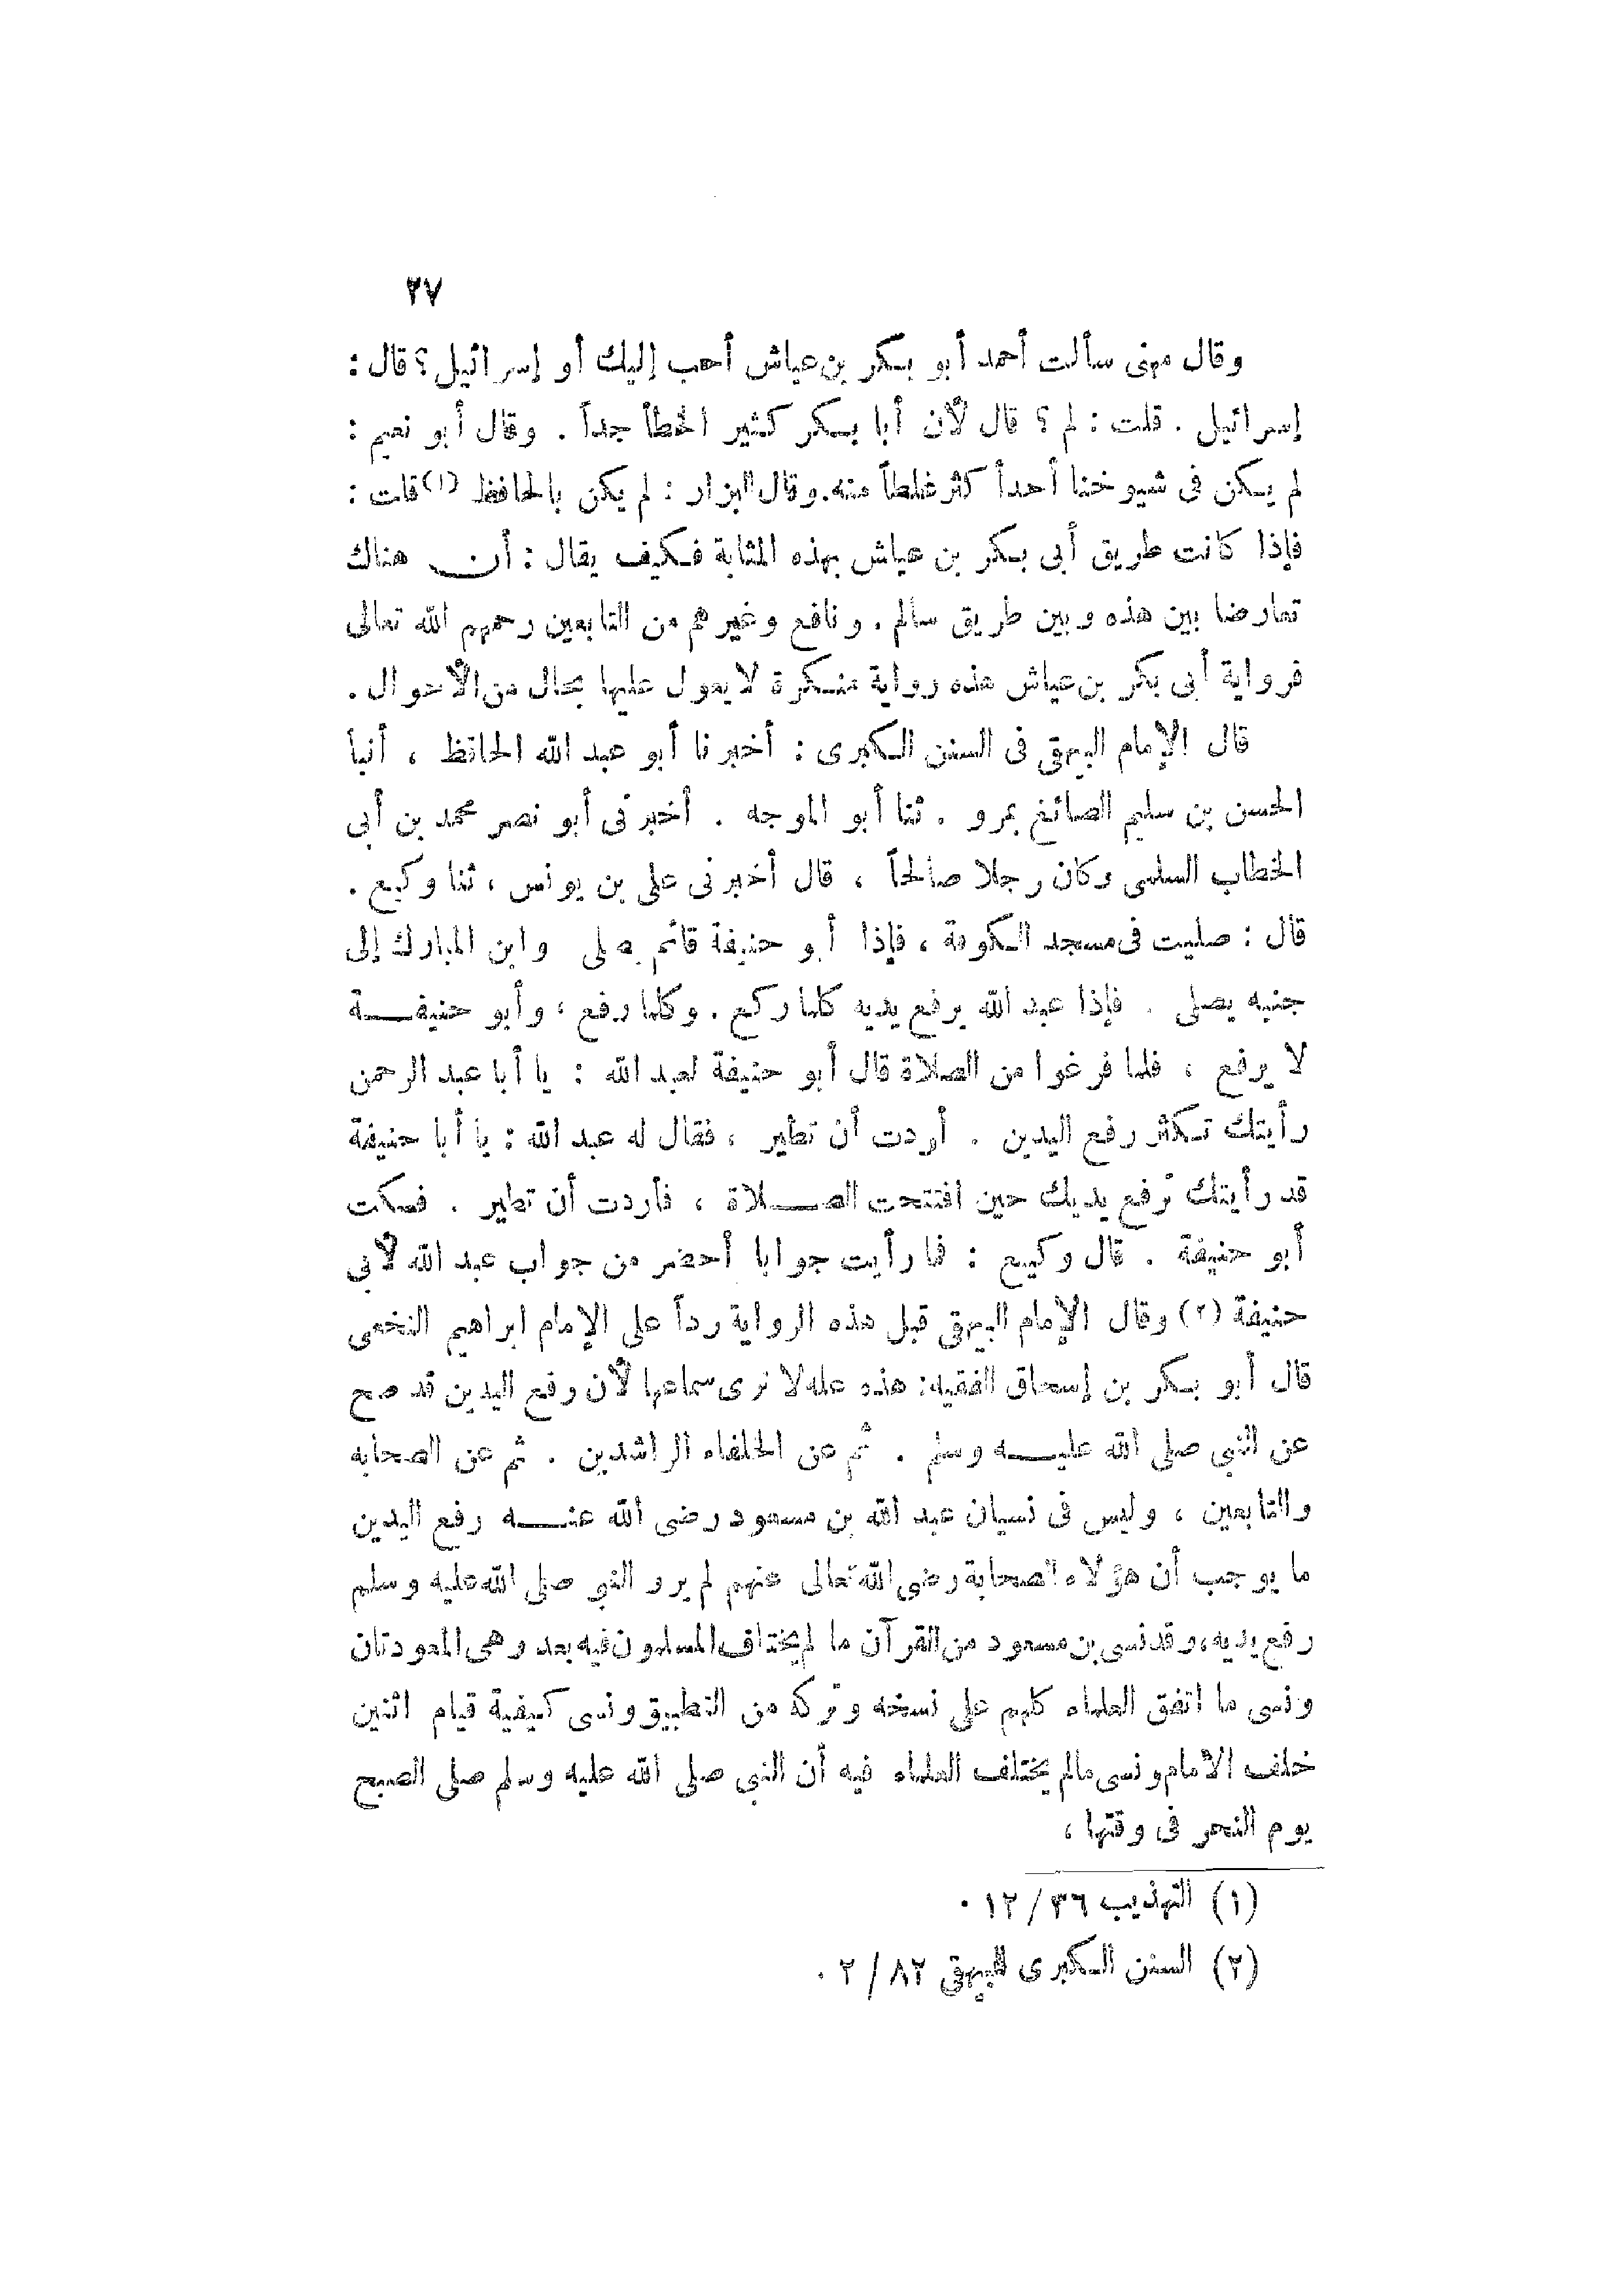 ٢٧
وقال مهنى سألت أحمد أبو بكر بن عياش أحب إليك أو إسرائيل؟ قال :
إسرائيل . قلت : لم ؟ قال لأن أبا بكر كثير الخطأ جداً . وقال أبو نعيم :
لم يكن فى شيوخنا أحداً كثر غلطاً منه. وقال البزار : لم يكن بالحافظ (١) قلت :
فإذا كانت طريق أبى بكر بن عياش بهذه المثابة فكيف يقال : أن هناك
تعارضا بين هذه وبين طريق سالم . ونافع وغيرهم من التابعين رحمهم الله تعالى
فرواية أبى بكر بن عياش هذه رواية منكرة لا يعول عليها بحال من الأحوال .
قال الإمام البيهقى فى السنن الكبرى : أخبرنا أبو عبد الله الحافظ ، أنبأ
الحسن بن سليم الصائغ بمرو . ثنا أبو الموجه . أخبرنى أبو نصر محمد بن أبى
الخطاب السلمى وكان رجلا صالحاً ، قال أخبرنى على بن يونس ، ثنا وكيع .
قال : صليت فى مسجد الكوفة ، فإذا أبو حنيفة قائم يصلى وابن المبارك إلى
جنبه يصلى . فإذا عبد الله يرفع يديه كلما ركع . وكلما رفع ، وأبو حنيفة
لا يرفع ، فلما فرغوا من الصلاة قال أبو حنيفة لعبد الله : يا أبا عبد الرحمن
رأيتك تكثر رفع اليدين . أردت أن تطير ، فقال له عبد الله : يا أبا حنيفة
قد رأيتك ترفع يديك حين افتتحت الصلاة ، فأردت أن تطير . فسكت
أبو حنيفة . قال وكيع : فما رأيت جوابا أحضر من جواب عبد الله لأبي
حنيفة (٢) وقال الإمام البيهقى قبل هذه الرواية رداً على الإمام ابراهيم النخعى
قال أبو بكر بن إسحاق الفقيه: هذه عله لا نرى سماعها لأن رفع اليدين قد صح
عن النبى صلى الله عليه وسلم . ثم عن الخلفاء الراشدين . ثم عن الصحابه
والتابعين ، وليس فى نسيان عبد الله بن مسعود رضى الله عنه رفع اليدين
ما يوجب أن هؤلاء الصحابة رضى الله تعالى عنهم لم يرو النبى صلى الله عليه وسلم
رفع يديه، وقد نسى بن مسعود من القرآن ما لم يختلف المسلمون فيه بعد وهى المعودتان
ونسى ما اتفق العلماء كلهم على نسخه وتركه من التطبيق ونسى كيفية قيام اثنين
خلف الأمام ونسى مالم يختلف العلماء فيه أن النبى صلى الله عليه وسلم صلى الصبح
يوم النحر فى وقتها ،
(١) التهذيب ٣٦/ ١٢ .
(٢) السنن الكبرى للبيهقى ٨٢/ ٢ .